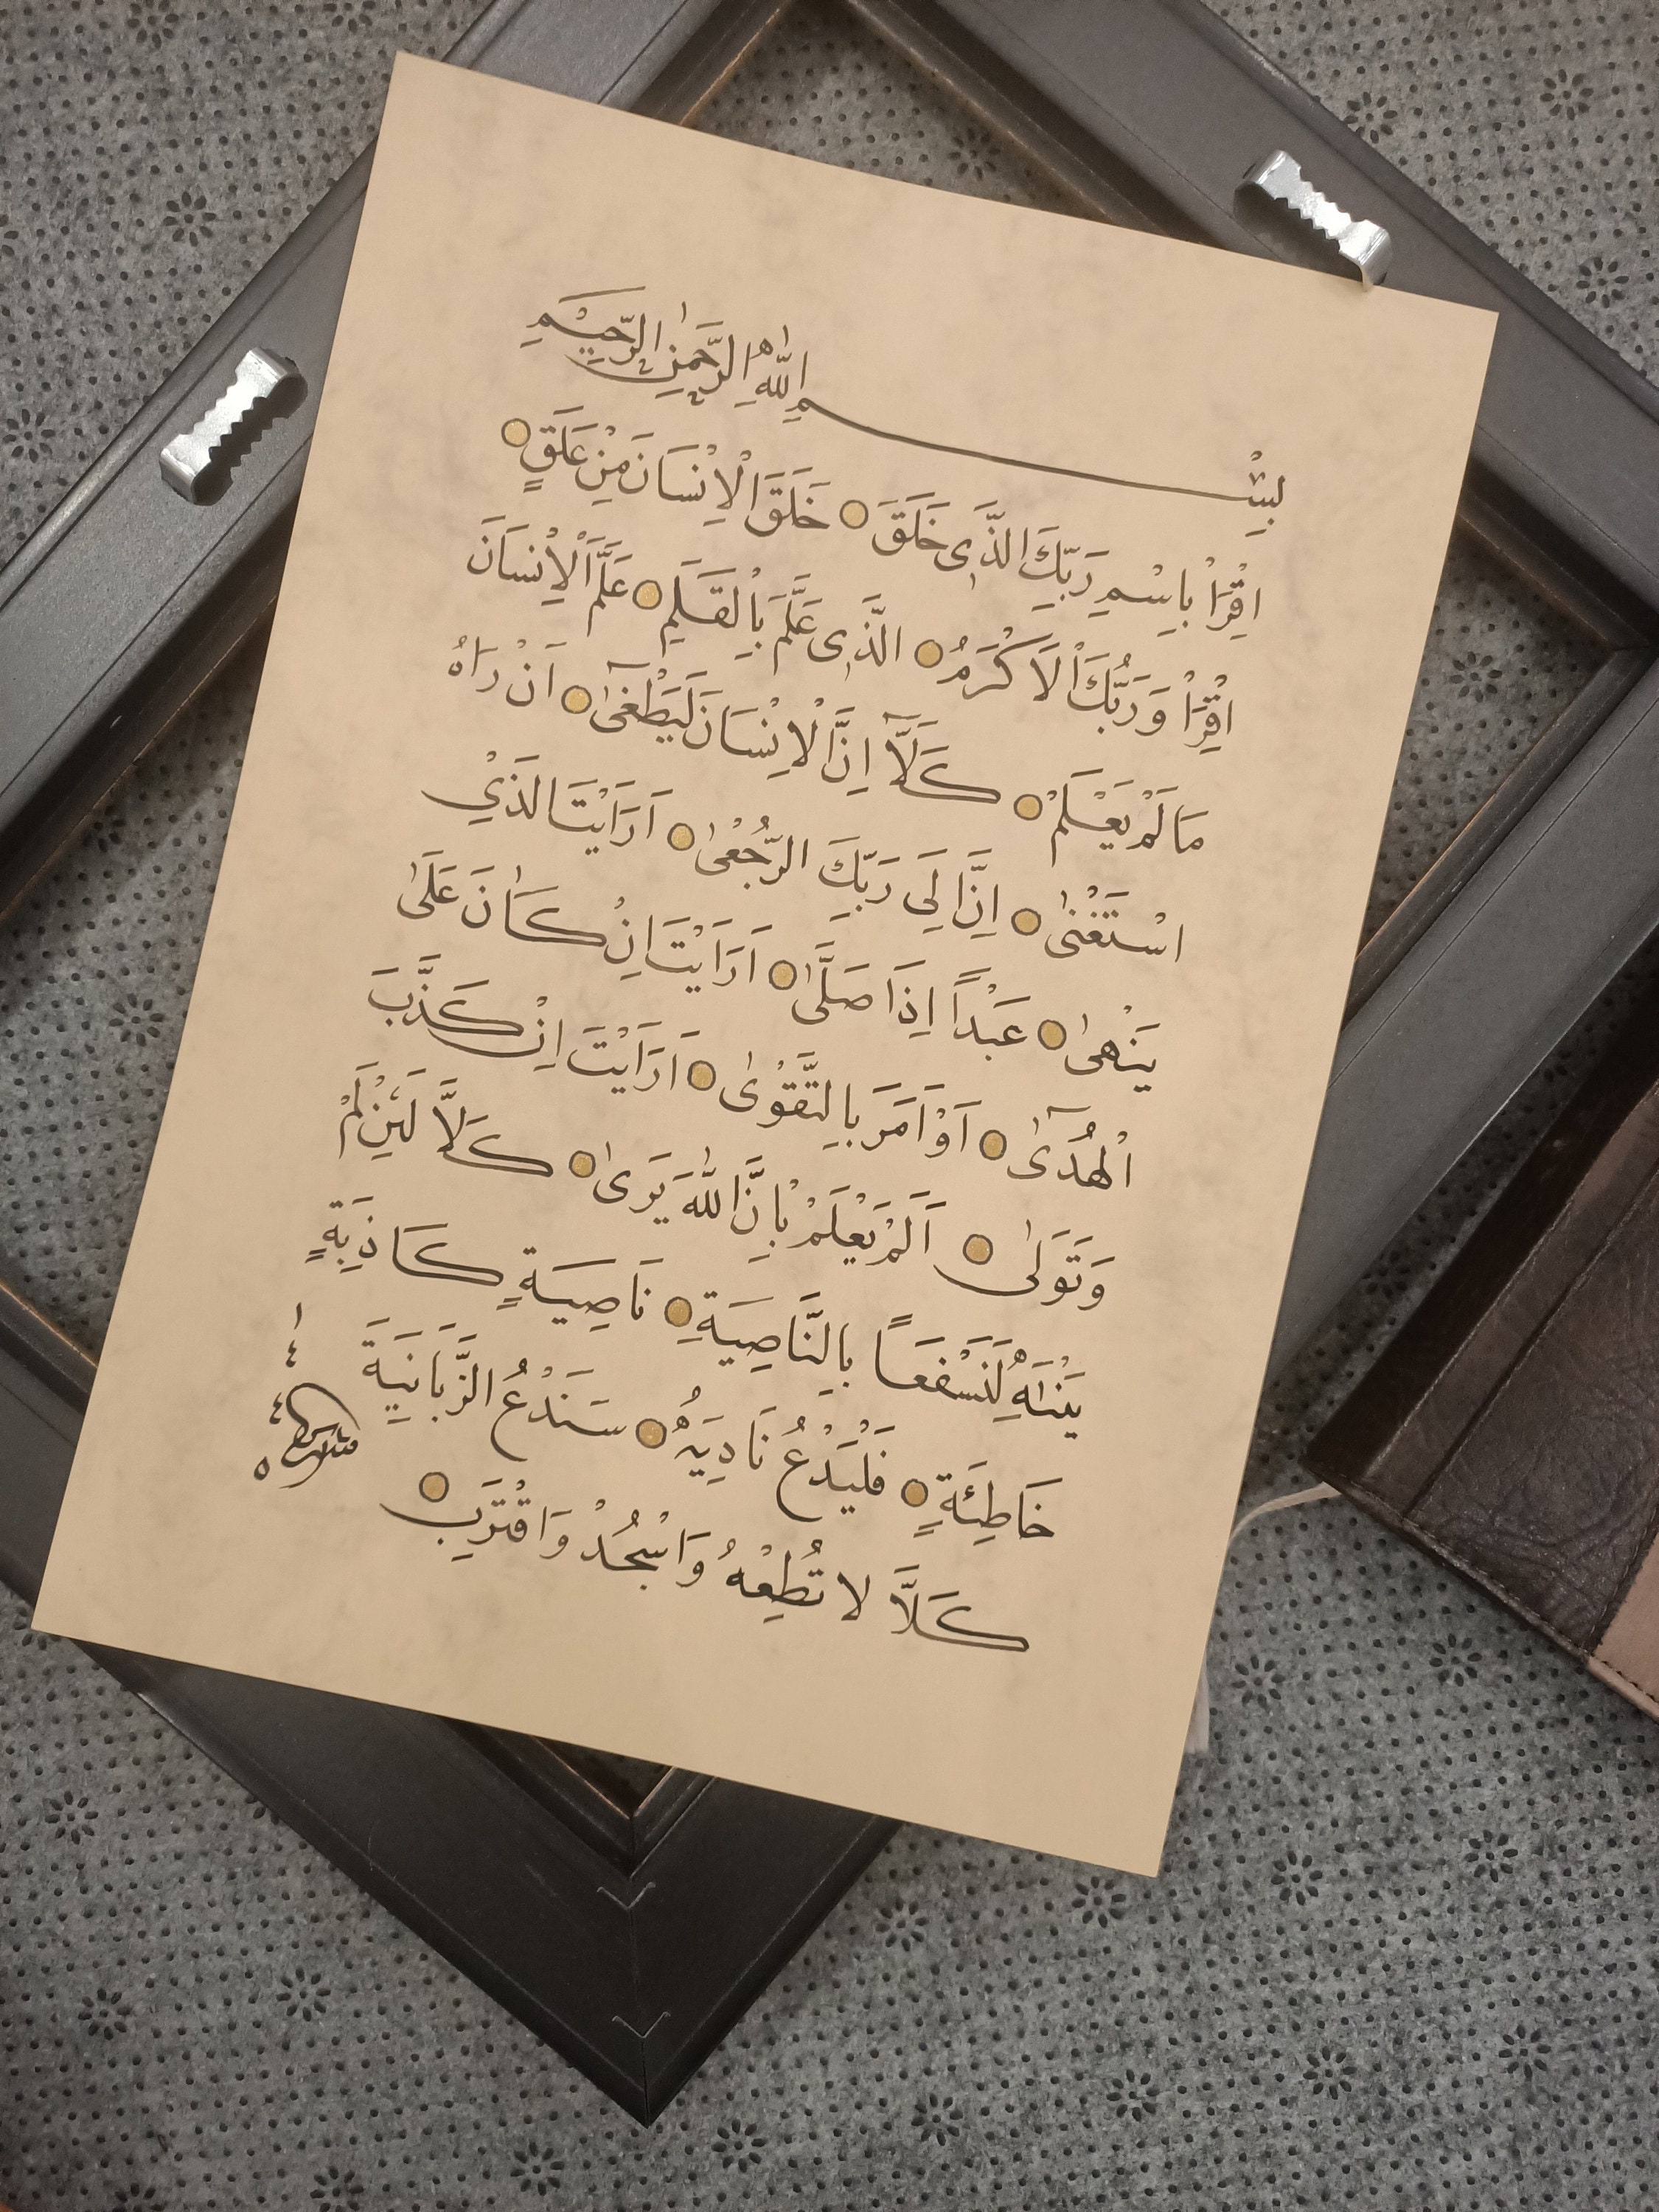 بِسْمِ اللّٰهِ الرَّحْمٰنِ الرَّحِيْمِ
اِقْرَاْ بِاسْمِ رَبِّكَ الَّذِى خَلَقَ ۝ خَلَقَ الْاِنْسَانَ مِنْ عَلَقٍ ۝
اِقْرَاْ وَرَبُّكَ الْاَكْرَمُ ۝ الَّذِى عَلَّمَ بِالْقَلَمِ ۝ عَلَّمَ الْاِنْسَانَ
مَا لَمْ يَعْلَمْ ۝ كَلَّآ اِنَّ الْاِنْسَانَ لَيَطْغٰىٓ ۝ اَنْ رَاٰهُ
اسْتَغْنٰى ۝ اِنَّ اِلٰى رَبِّكَ الرُّجْعٰى ۝ اَرَاَيْتَ الَّذِيْ
يَنْهٰى ۝ عَبْداً اِذَا صَلَّىٰ ۝ اَرَاَيْتَ اِنْ كَانَ عَلَى
الْهُدٰىٓ ۝ اَوْ اَمَرَ بِالتَّقْوٰى ۝ اَرَاَيْتَ اِنْ كَذَّبَ
وَتَوَلّٰى ۝ اَلَمْ يَعْلَمْ بِاَنَّ اللّٰهَ يَرٰى ۝ كَلَّا لَئِنْ لَمْ
يَنْتَهِ لَنَسْفَعًا بِالنَّاصِيَةِ ۝ نَاصِيَةٍ كَاذِبَةٍ
خَاطِئَةٍ ۝ فَلْيَدْعُ نَادِيَهُ ۝ سَنَدْعُ الزَّبَانِيَةَ
كَلَّا لا تُطِعْهُ وَاسْجُدْ وَاقْتَرِبْ ۝
١٤٤٥